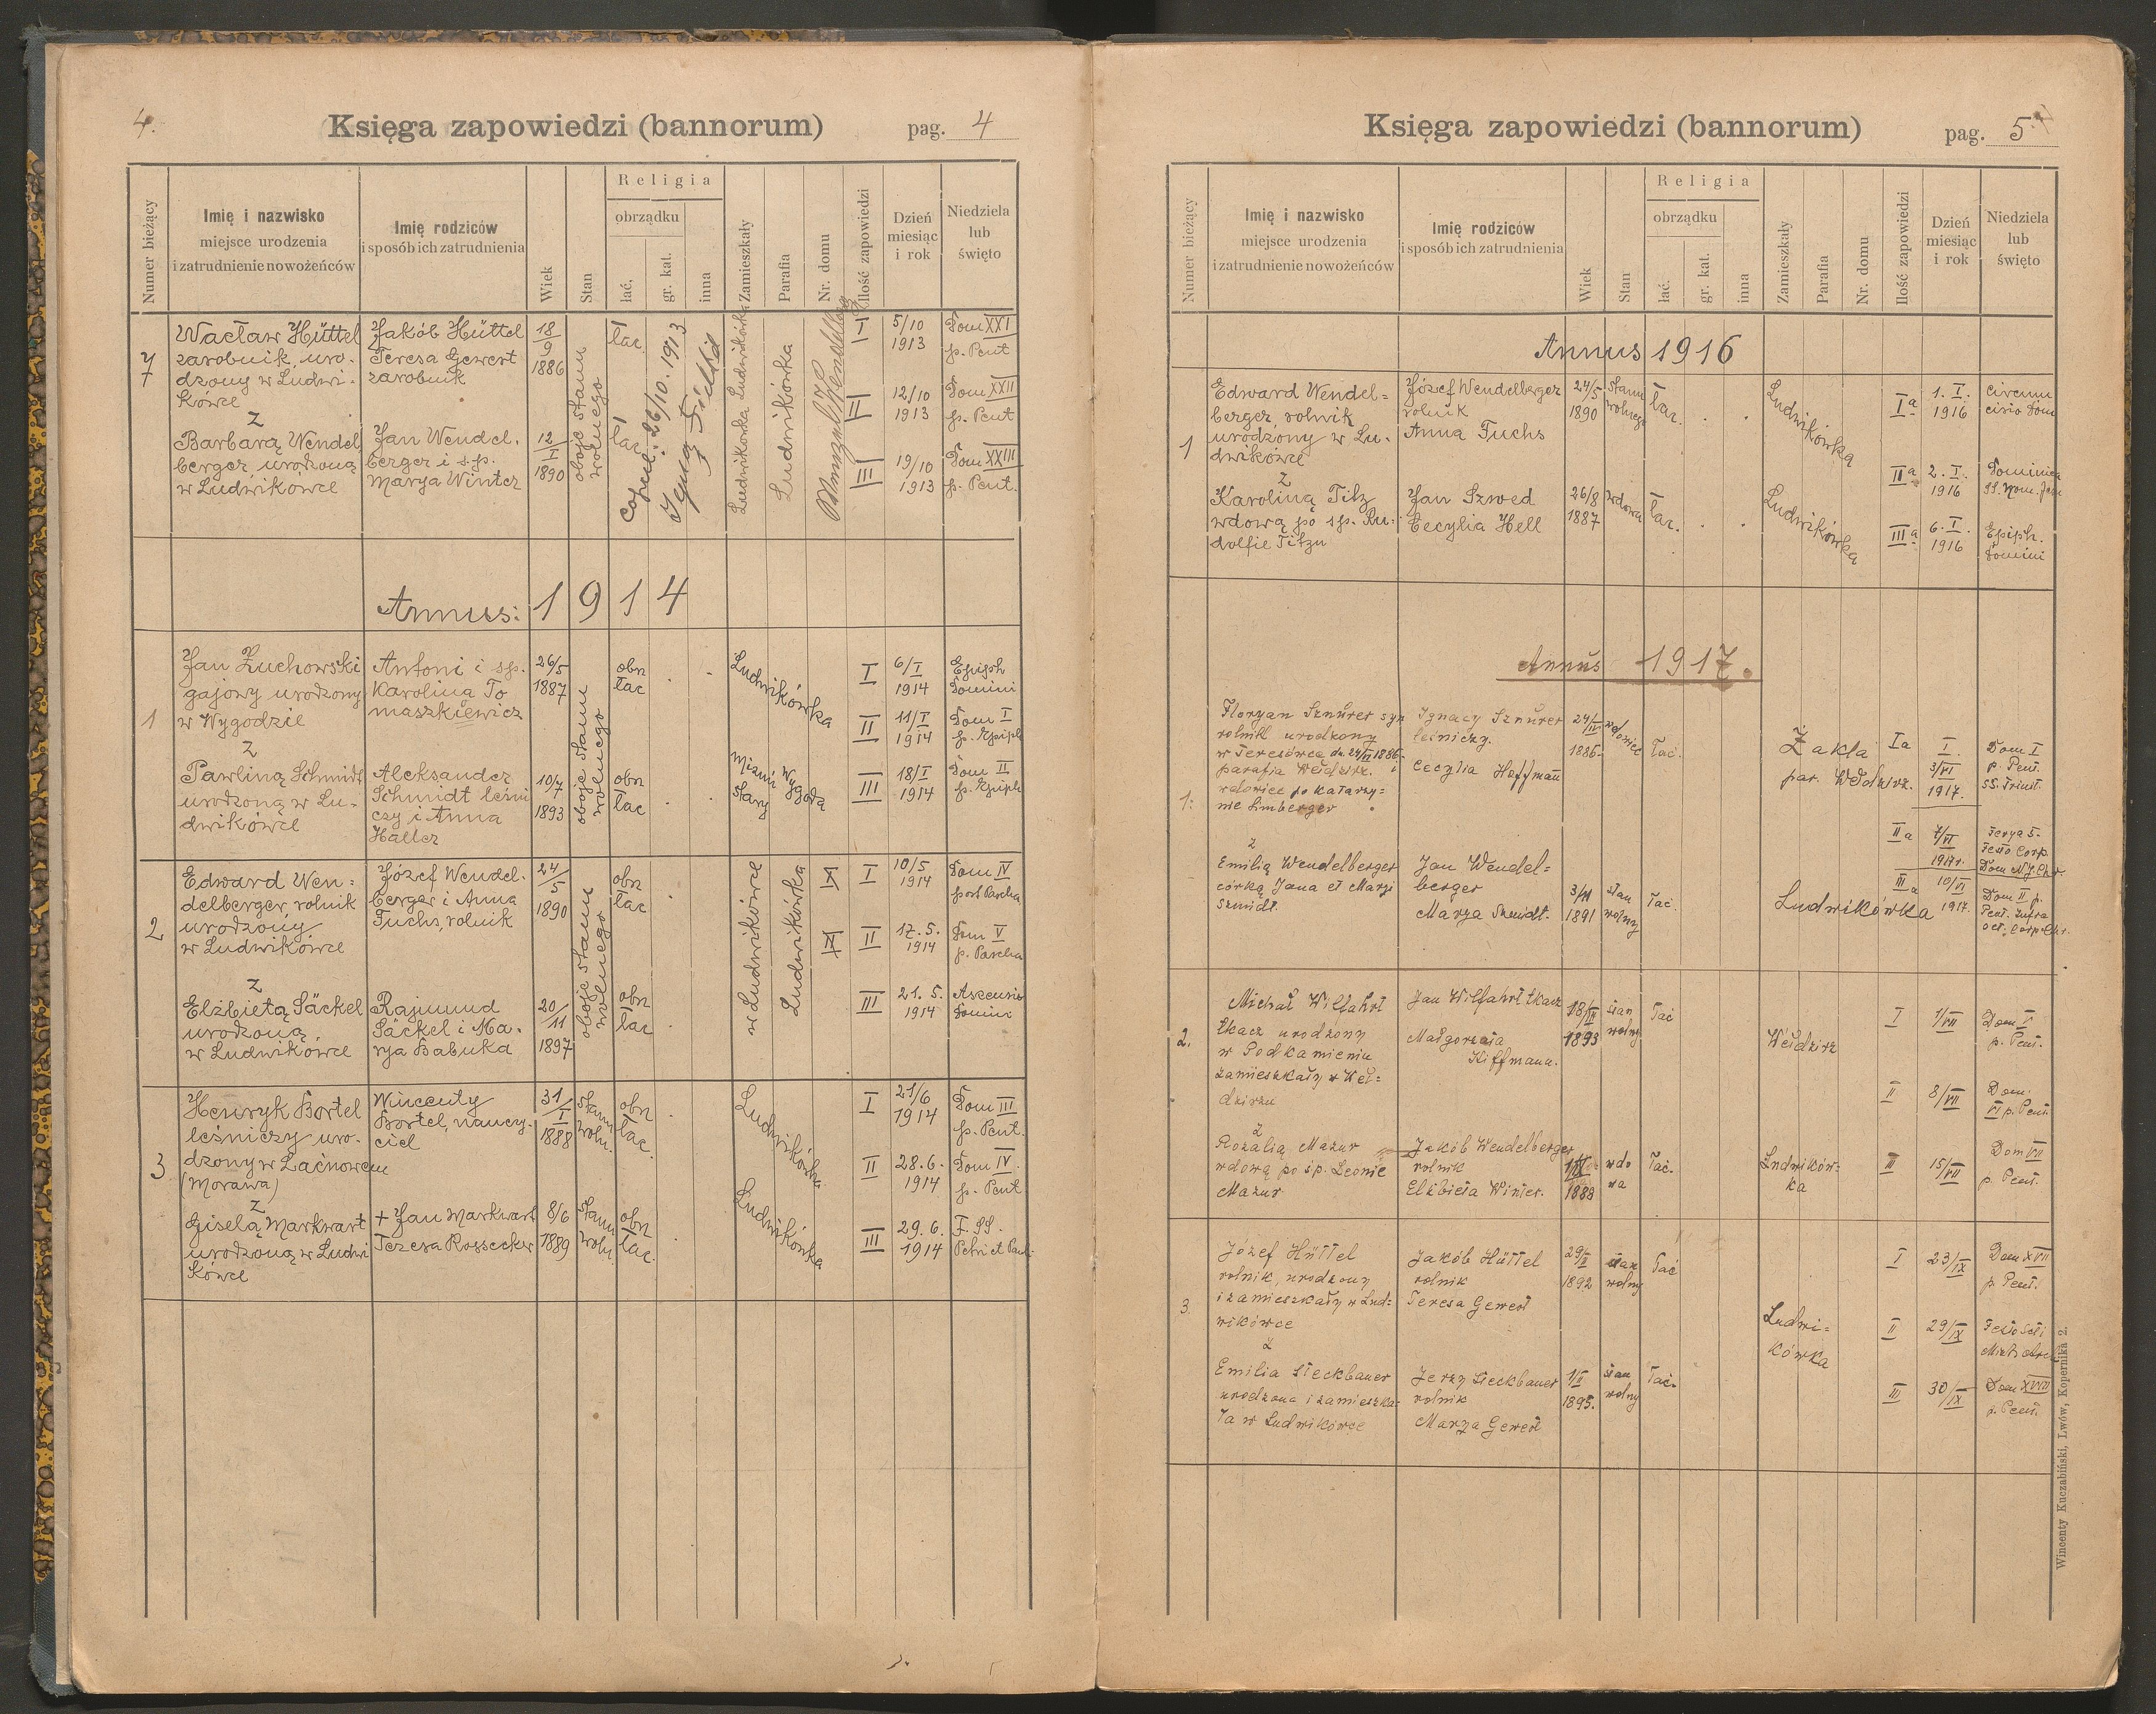 4.
Księga zapowiedzi (bannorum)
pag. 4
Numer bieżący
Imię i nazwisko
miejsce urodzenia
i zatrudnienie nowożeńców
Imię rodziców
i sposób ich zatrudnienia
Wiek
Stan
Religia
obrządku
łać.
gr. kat.
inna
Zamieszkały
Parafia
Nr. domu
Ilość zapowiedzi
Dzień
miesiąc
i rok
Niedziela
lub
święto
7
Wacław Hüttel
zarobnik, uro-
dzony w Ludwi-
kówce
Z
Barbarą Wendel
berger urodzoną
w Ludwikowce
Jakób Hüttel
Teresa Gewert
zarobnik
Jan Wendel-
berger i s.p.
Marya Winter
18/9
1886
12/I
1890
oboje stanu
wolnego
łac
łac
copul: 26/10. 1913
Ludwikówka Ludwikówka
Ludwikówka
I
5/10
1913
Dom XXI
p. Pent
II
12/10
1913
Dom XXII
p. Pent
III
19/10
1913
Dom XXIII
p. Pent.
Annus: 1914
1
Jan Żuchowski
gajowy urodzony
w Wygodzie
Z
Pawliną Schmidt
urodzoną w Lu-
dwikówce
Antoni i sp.
Karolina To
maszkiewicz
Aleksander
Schmidt leśni
czy i Anna
Haller
26/5
1887
10/7
1893
oboje stanu
wolnego
obrz
łac
obrz
łac
Ludwikówka
Mizuń Wygoda
stary
I
6/I
1914
Epiph
Domini
II
11/I
1914
Dom I
p. Epiph
III
18/I
1914
Dom II
p. Epiph
2
Edward Wen=
delberger, rolnik
urodzony
w Ludwikówce
Z
Elżbietą Säckel
urodzoną
w Ludwikówce
Józef Wendel-
berger i Anna
Fuchs, rolnik
Rajmund
Säckel i Ma-
rya Babuka
24/5
1890
20/11
1897
oboje stanu
wolnego
obrz
łac
obrz
łac
w Ludwikówce
Ludwikówka
I
10/5
1914
Dom IV
post Pascha
II
17. 5.
1914
Dom V
p. Pascha
III
21. 5.
1914
Ascensio
Domini
3
Henryk Bortel
leśniczy uro-
dzony w Laćnowem
(Morawa)
Z
Giselą Markwart
urodzoną w Ludwi
kówce
Wincenty
Bortel, nauczy-
ciel
+ Jan Markwart
Teresa Rossecker
31/I
1888
8/6
1889
stanu
woln.
stanu
woln
obrz
łac.
obrz
łac.
Ludwikówka
Ludwikówka
I
21/6
1914
Dom III
p. Pent.
II
28. 6.
1914
Dom IV.
p. Pent
III
29. 6.
1914
F. SS.
Petri et Pauli
Księga zapowiedzi (bannorum)
pag. 5
Numer bieżący
Imię i nazwisko
miejsce urodzenia
i zatrudnienie nowożeńców
Imię rodziców
i sposób ich zatrudnienia
Wiek
Stan
Religia
obrządku
łać.
gr. kat.
inna
Zamieszkały
Parafia
Nr. domu
Ilość zapowiedzi
Dzień
miesiąc
i rok
Niedziela
lub
święto
Annus 1916
1
Edward Wendel=
berger, rolnik
urodzony w Lu-
dwikówce
Z
Karoliną Titz
wdową po sp. Ru-
dolfie Titzu
Józef Wendelberger
rolnik
Anna Fuchs
Jan Szwed
Cecylia Hell
24/5
1890
26/8
1887
stanu
wolnego
wdowa
łac.
łac.
Ludwikówka
Ludwikówka
Ia
1. I.
1916
Circum
cisio Dom
IIa
2. I.
1916
Dominica
SS. Nom. Jesu
IIIa
6. I.
1916
Epiph.
Domini
Annus 1917.
1.
Floryan Sznürer syn
rolnik urodzony
w Teresówce dn. 24/IV 1886.
parafia Wełdzirz.
wdowiec po Katarzy=
nie Limberger
z
Emilią Wendelberger
córką Jana et Maryi
Szmidt.
Ignacy Sznürer
leśniczy.
i
Cecylia Hoffmann
Jan Wendel=
berger
Marya Szmidt.
24/IV
1886.
1891
wdowiec
stan
wolny
łać.
łać.
Zakła
par. Wełdzirz.
Ludwikówka
Ia
I.
3/VI
1917.
Dom I
p. Pent.
SS. Trinit.
IIa
7/VI
1917.
Feria 5.
Festo Corp.
Dom N. J. Chr.
IIIa
10/VI
1917.
Dom II p.
Pent. infra
oct. Corp. Chr.
2.
Michał Wilfahrt
tkacz urodzony
w Podkamieniu
zamieszkały w Weł=
dzirzu
z
Rozalią Mazur
wdową po śp. Leonie
Mazur
Jan Wilfahrt tkacz
Małgorzata
Kiffmann.
Jakób Wendelberger
rolnik
Elżbieta Winter.
1893
1888
stan
wolny
wdo
wa
łać
łać.
Wełdzirz
Ludwików-
ka
I
1/VII
Dom V
p. Pent.
II
8/VII
Dom.
VI p. Pent.
III
15/VII
Dom VII
p. Pent.
3.
Józef Hüttel
rolnik, urodzony
i zamieszkały w Lud=
wikówce
z
Emilia Steckbauer
urodzona i zamieszka-
ła w Ludwikówce
Jakób Hüttel
rolnik
Teresa Gewert
Jerzy Steckbauer
rolnik
Marya Gewert
29/II
1892
1/II
1895.
stan
wolny
stan
wolny
łać
łać.
Ludwi=
kówka
I
23/IX
Dom XVII
p. Pent.
II
29/IX
Festo Scti
Mich. Arch.
III
30/IX
Dom XVIII
p. Pent.
Wincenty Kuczabiński, Lwów, Kopernika 2.